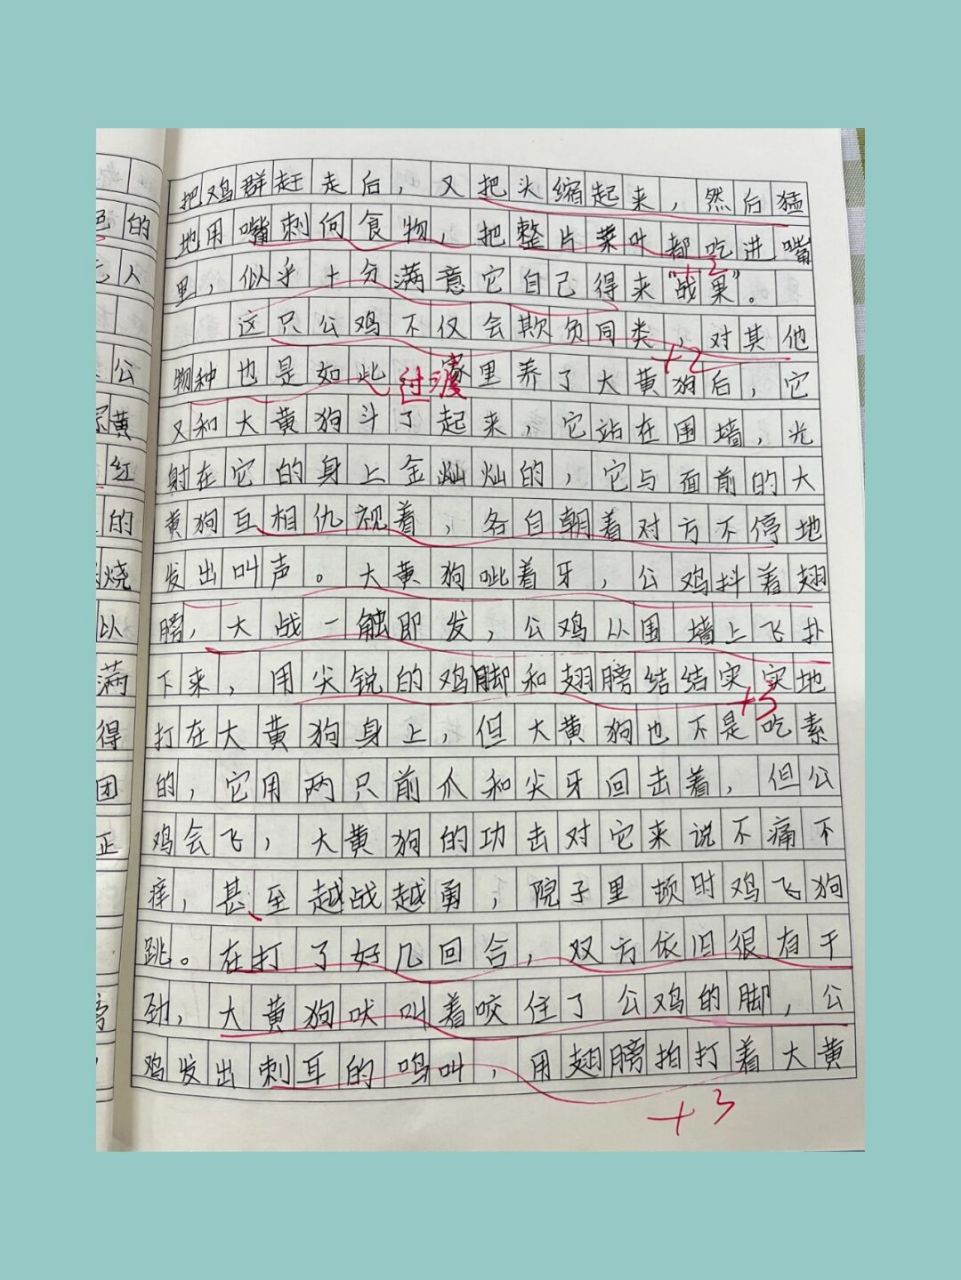 把鸡群赶走后，又把头缩起来，然后猛
地用嘴刺向食物，把整片菜叶都吃进嘴
+2
里，似乎十分满意它自己得来"战果"。
这只公鸡不仅会欺负同类，对其他
+2
物种也是如此。家里养了大黄狗后，它
过渡
又和大黄狗斗了起来，它站在围墙，光
射在它的身上金灿灿的，它与面前的大
黄狗互相仇视着，各自朝着对方不停地
发出叫声。大黄狗呲着牙，公鸡抖着翅
膀，大战一触即发，公鸡从围墙上飞扑
下来，用尖锐的鸡脚和翅膀结结实实地
+3
打在大黄狗身上，但大黄狗也不是吃素
的，它用两只前爪和尖牙回击着，但公
鸡会飞，大黄狗的功击对它来说不痛不
痒，甚至越战越勇，院子里顿时鸡飞狗
跳。在打了好几回合，双方依旧很有干
劲，大黄狗吠叫着咬住了公鸡的脚，公
鸡发出刺耳的鸣叫，用翅膀拍打着大黄
+3
的
人
公
黄
红
的
烧
以
满
得
团
正